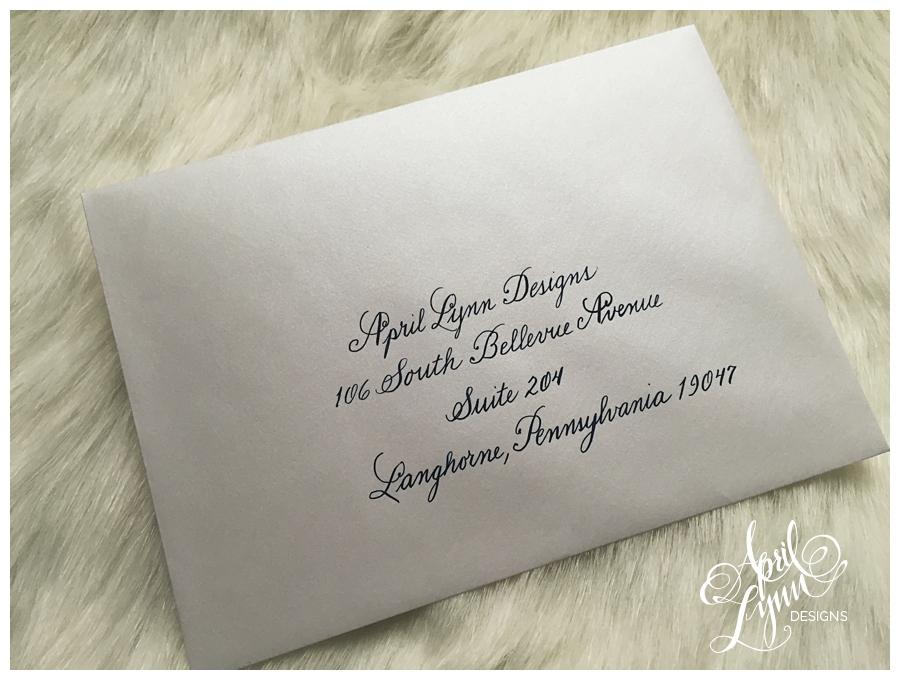 April Lynn Designs
106 South Bellevue Avenue
Suite 204
Langhorne, Pennsylvania 19047
April
Lynn
DESIGNS